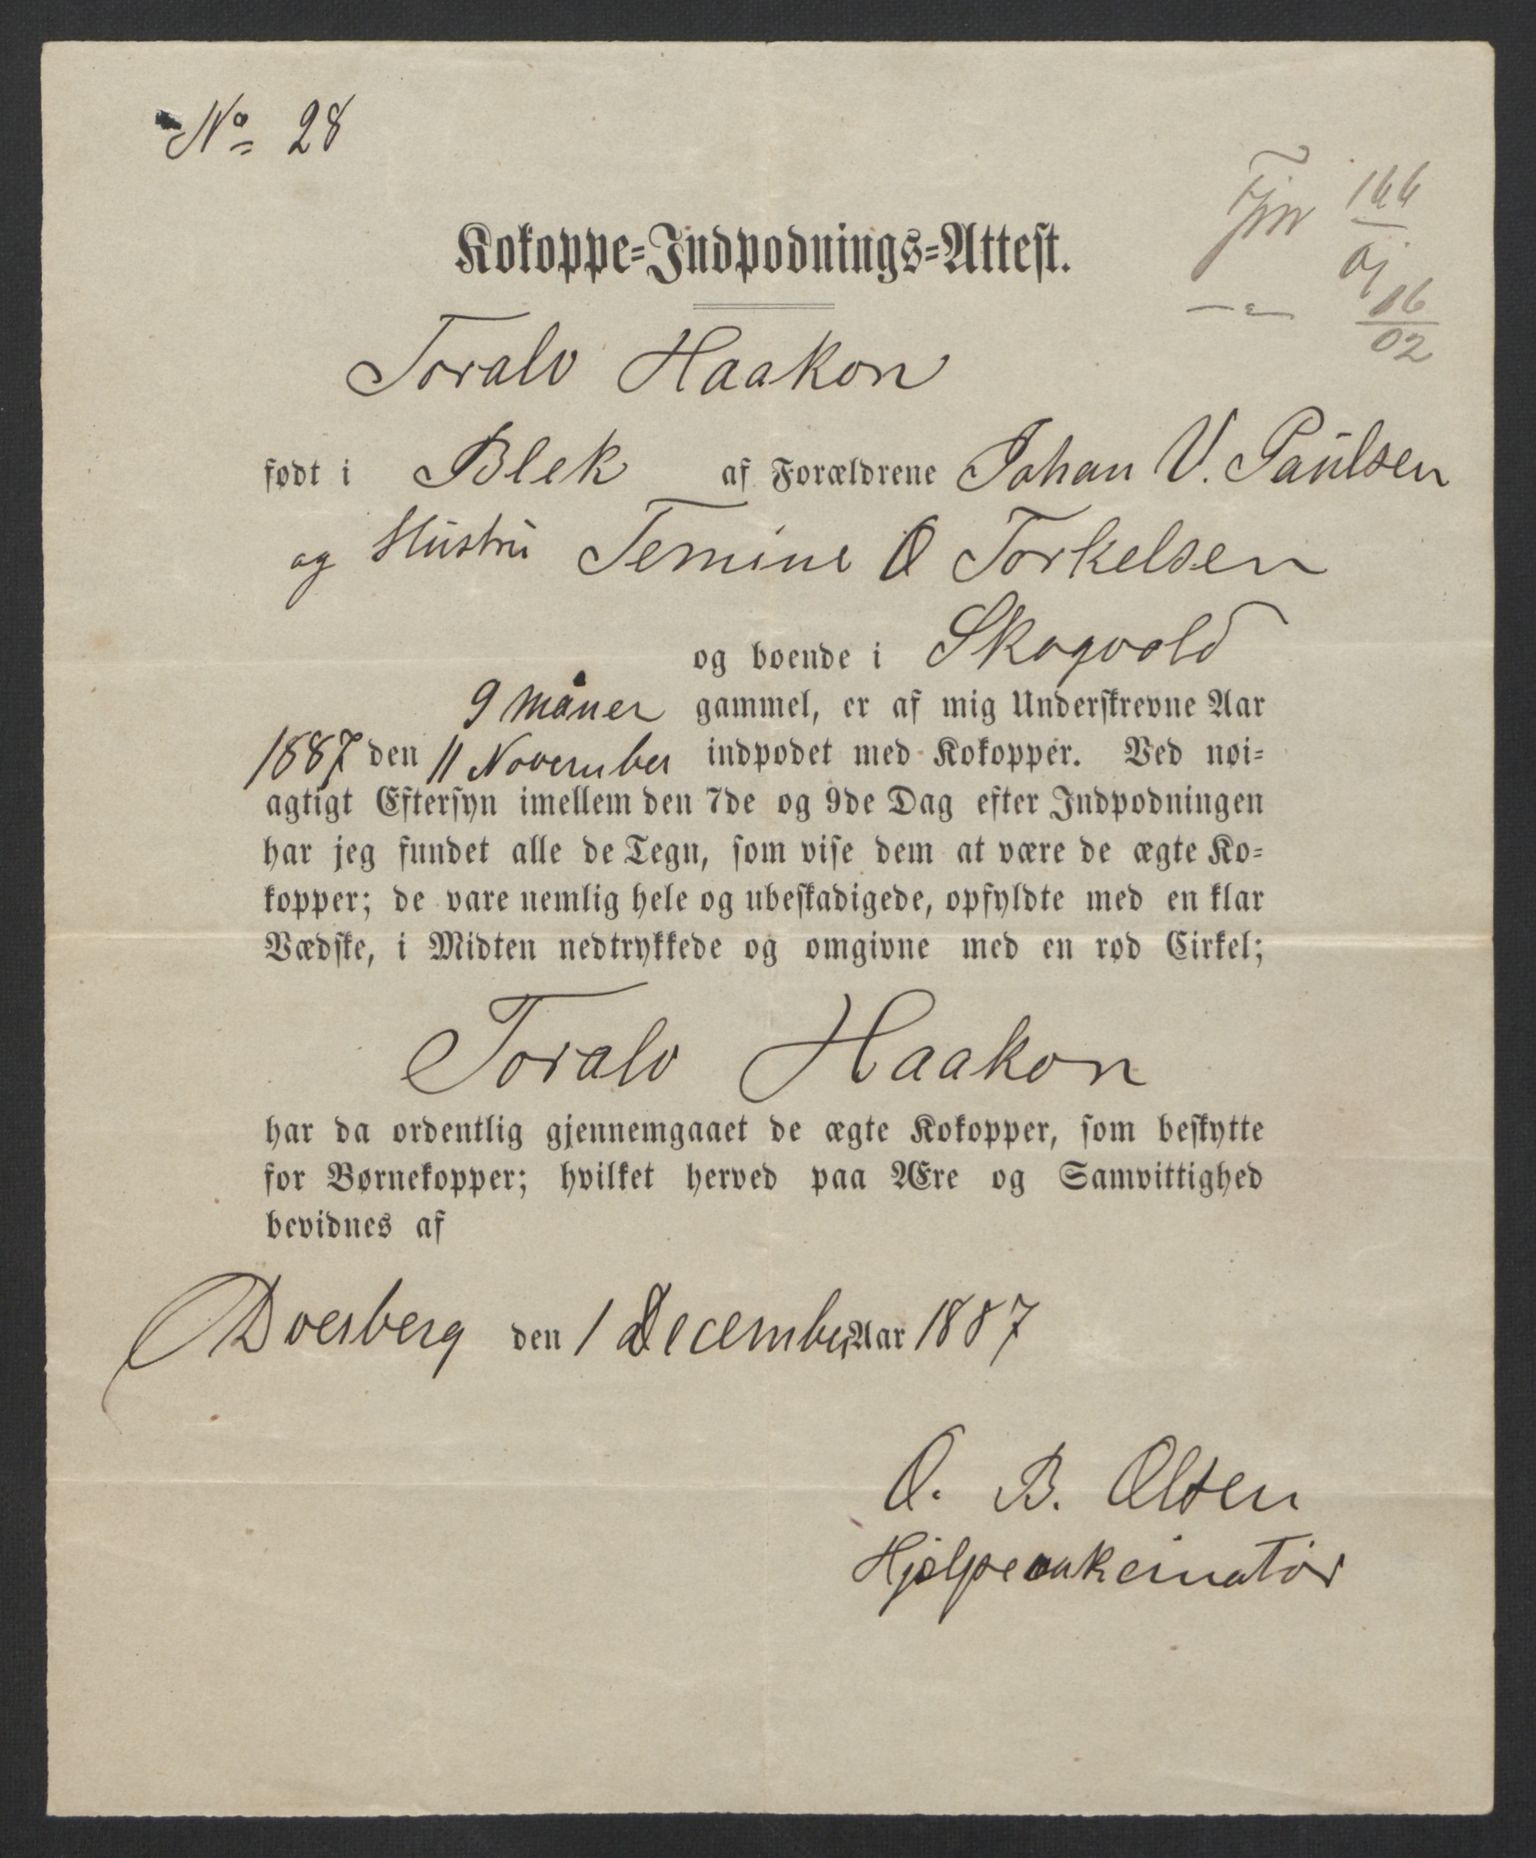 No 28
166
02
Kokoppe-Indpodnings-Attest.
Toralv Haakon
født i Blek af Forældrene Johan V. Paulsen
og Hustru Temine O Torkelsen
og boende i Skogvold
9 måner gammel, er af mig Underskrevne Aar
1887 den 11 November indpodet med Kokopper. Ved nøi-
agtigt Eftersyn imellem den 7de og 9de Dag efter Indpodningen
har jeg fundet alle de Tegn, som vise dem at være de ægte Ko-
kopper; de vare nemlig hele og ubeskadigede, opfyldte med en klar
Vædske, i Midten nedtrykkede og omgivne med en rød Cirkel;
Toralv Haakon
har da ordentlig gjennemgaaet de ægte Kokopper, som beskytte
for Børnekopper; hvilket herved paa Ære og Samvittighed
bevidnes af
den 1 December Aar 1887
O. B. Olsen
Hjelpevakcinatör